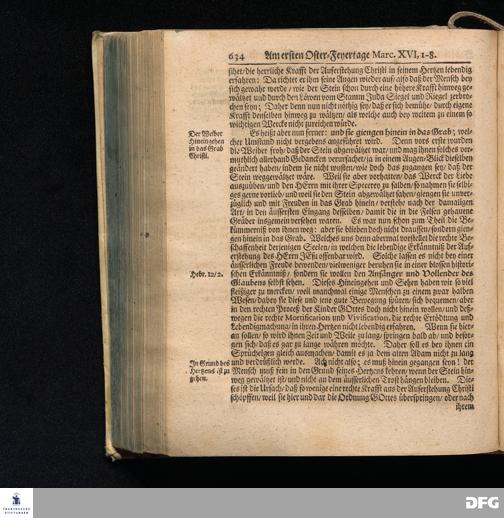 634 Am ersten Oster-Feyertage Marc. XVI, 1-8.
siehet/die herrliche Krafft der Auferstehung Christi in seinem Hertzen lebendig
erfahren: Da richtet er ihm seine Augen wieder auf/also daß der Mensch bey
sich gewahr werde/wie der Stein schon durch eine höhere Krafft hinweg ge-
wältzet und durch den Löwen vom Stamm Juda Siegel und Riegel zerbro-
chen seyn; Daher denn nun nicht nöthig sey/daß er sich bemühe/durch eigene
Krafft denselben hinweg zu wältzen/als welche auch bey weitem zu einem so
wichtigen Wercke nicht zureichen würde.
Der Weiber
Hineingehen
in das Grab
Christi.
Es heißt aber nun ferner: und sie giengen hinein in das Grab; wel-
cher Umstand nicht vergebens angeführet wird. Denn vors erste wurden
die Weiber froh/daß der Stein abgewältzet war/und mag ihnen solches ver-
muthlich allerhand Gedancken verursachet/ja in einem Augen-Blick dieselben
geändert haben/indem sie nicht wusten/wie doch das zugangen sey/daß der
Stein weggewältzet wäre. Weil sie aber vorhatten/das Werck der Liebe
auszuüben/und den HErrn mit ihrer Specerey zu salben/so nahmen sie selbi-
ges gerne vorlieb/und weil sie den Stein abgewältzet sahen/giengen sie unver-
züglich und mit Freuden in das Grab hinein/verstehe nach der damaligen
Art/in den äussersten Eingang desselben/damit die in die Felsen gehauene
Gräber insgemein versehen waren. Es war nun schon zum Theil die Be-
kümmerniß von ihnen weg: aber sie blieben doch nicht draussen/sondern gien-
gen hinein in das Grab. Welches uns denn abermal vorstellet die rechte Be-
schaffenheit derjenigen Seelen/in welchen die lebendige Erkänntniß der Auf-
erstehung des HErrn JEsu offenbar wird. Solche lassen es nicht bey einer
äusserlichen Freude bewenden/vielweniger beruhen sie in einer blossen histori-
Hebr. 12/2.
schen Erkänntniß/sondern sie wollen den Anfänger und Vollender des
Glaubens selbst sehen. Dieses Hineingehen und Sehen haben wir so viel
fleißiger zu mercken/weil manchmal einige Menschen zu einem zwar halben
Wesen/daben sie diese und jene gute Bewegung spüren/sich bequemen/aber
in den rechten Proceß der Kinder GOttes doch nicht hinein wollen/und deß-
wegen die rechte Mortification und Vivification, die rechte Ertödtung und
Lebendigmachung/in ihren Hertzen nicht lebendig erfahren. Wenn sie hier-
an sollen/so wird ihnen Zeit und Weile zu lang/springen bald ab/und besor-
gen sich/daß es gar zu lange währen möchte. Daher soll es bey ihnen ein
Sprüchelgen gleich ausmachen/damit es ja dem alten Adam nicht zu lang
In Grund des
Hertzens ist zu
gehen.
und verdrüßlich werde. Ach nicht also; es muß hinein gegangen seyn! der
Mensch muß fein in den Grund seines Hertzens kehren/wenn der Stein hin-
weg gewältzet ist/und nicht an dem äusserlichen Trost hängen bleiben. Die-
ses ist die Ursach/daß so wenige eine rechte Krafft aus der Auferstehung Christi
schöpffen/weil sie hier und dar die Ordnung GOttes überspringen/oder nach
ihrem
FRANCKESCHE
STIFTUNGEN
DFG